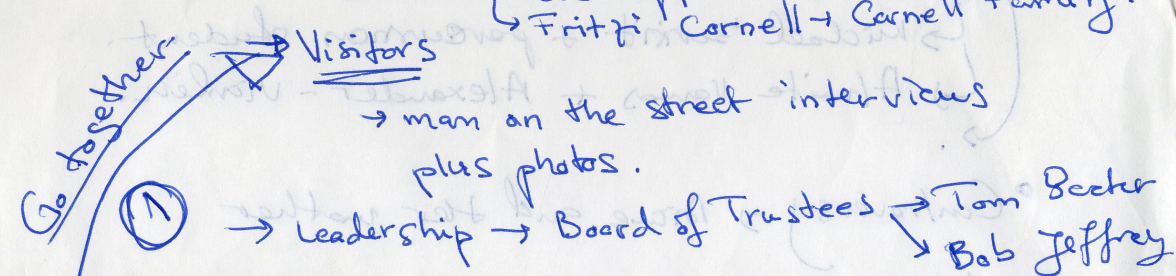 ↳ Fritzi Cornell → Cornell Family.
Go together
→ Visitors
→ man on the street interviews
plus photos.
① → Leadership → Board of Trustees → Tom Becker
↘ Bob Jeffrey